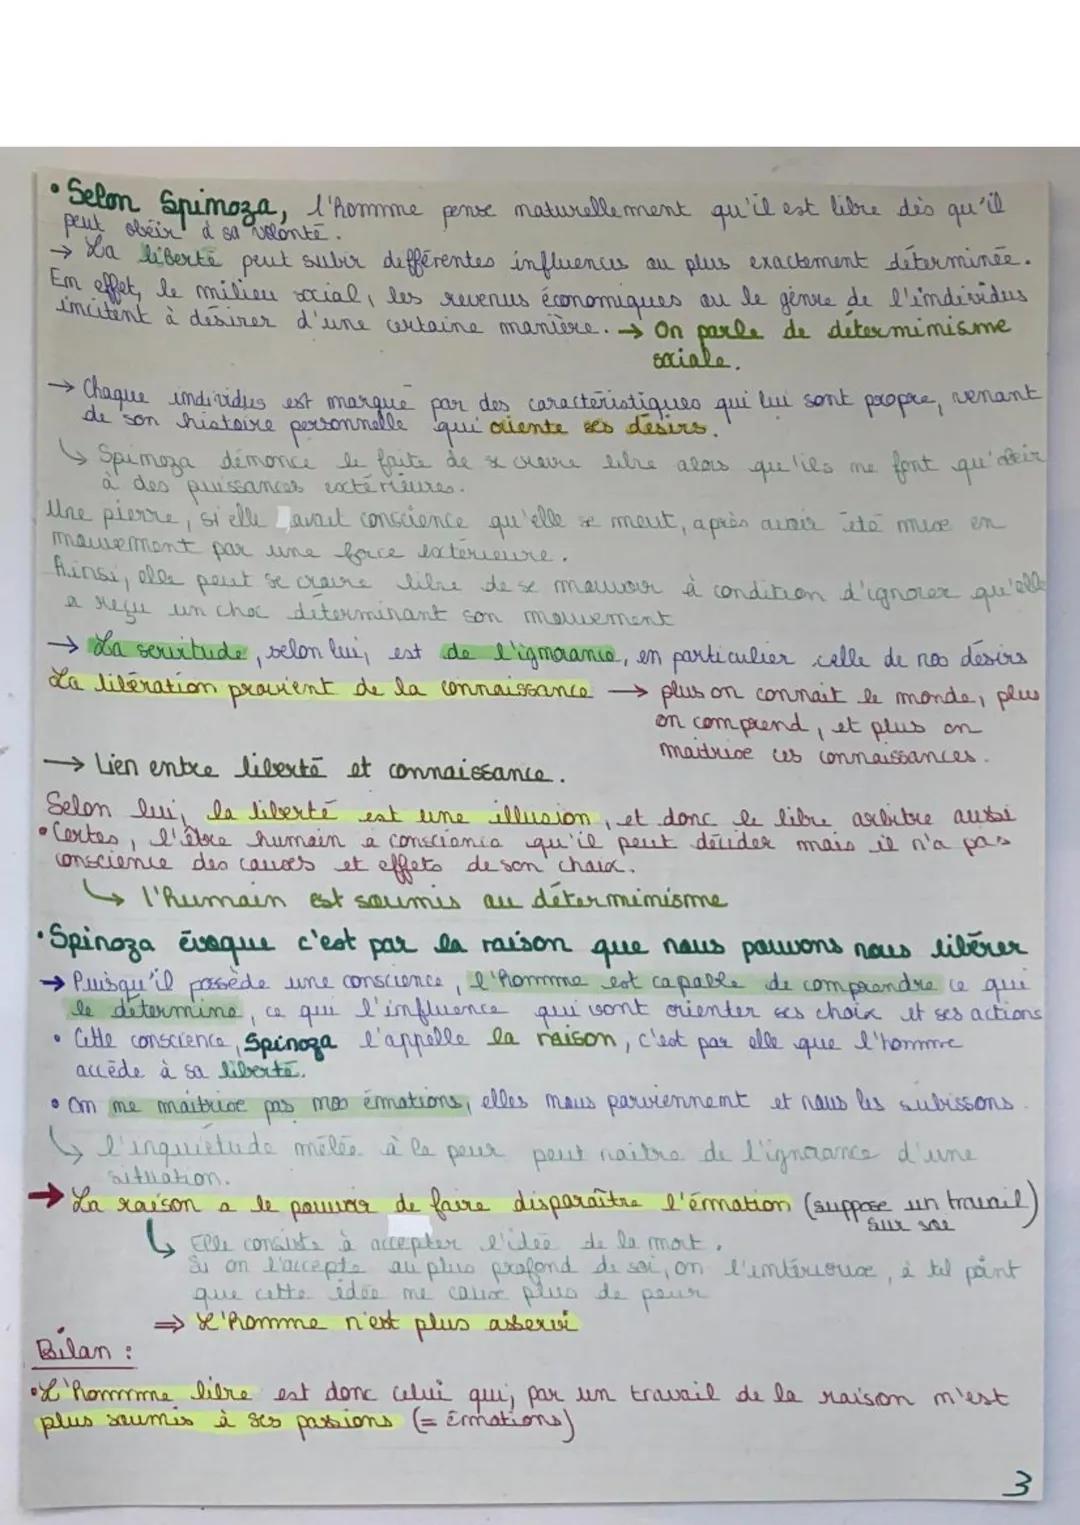 • Selon Spinoza, l'homme pense naturellement qu'il est libre dès qu'il
peut obéir à sa volonté.
→ La liberté peut subir différentes influences ou plus exactement déterminée.
En effet, le milieu social, les revenus économiques ou le genre de l'individus
incitent à désirer d'une certaine manière. → On parle de déterminisme
sociale.
→ Chaque individus est marqué par des caractéristiques qui lui sont propre, venant
de son histoire personnelle qui oriente ses désirs.
↳ Spinoza dénonce le faite de se croire libre alors qu'ils ne font qu'obéir
à des puissances extérieures.
Une pierre, si elle avait conscience qu'elle se meut, après avoir été mise en
mouvement par une force extérieure.
Ainsi, elle peut se croire libre de se mouvoir à condition d'ignorer qu'elle
a reçu un choc déterminant son mouvement
→ La servitude, selon lui, est de l'ignorance, en particulier celle de nos désirs
La libération provient de la connaissance → plus on connait le monde, plus
on comprend, et plus on
maitrise ces connaissances.
→ Lien entre liberté et connaissance.
Selon lui, la liberté est une illusion, et donc le libre arbitre aussi
• Certes, l'être humain a conscience qu'il peut décider mais il n'a pas
conscience des causes et effets de son choix.
↳ l'humain est soumis au déterminisme
• Spinoza évoque c'est par la raison que nous pouvons nous libérer
→ Puisqu'il possède une conscience, l'homme est capable de comprendre ce qui
le détermine, ce qui l'influence qui vont orienter ses choix et ses actions
• Cette conscience, Spinoza l'appelle la raison, c'est par elle que l'homme
accède à sa liberté.
• On ne maitrise pas nos émotions, elles nous parviennent et nous les subissons.
↳ l'inquiétude mêlée à la peur peut naitre de l'ignorance d'une
situation.
→ La raison a le pouvoir de faire disparaître l'émotion (suppose un travail)
sur soi
↳ Elle consiste à accepter l'idée de la mort.
Si on l'accepte au plus profond de soi, on l'intériorise, à tel point
que cette idée ne cause plus de peur
⇒ L'homme n'est plus asservi
Bilan :
• L'homme libre est donc celui qui, par un travail de la raison n'est
plus soumis à ses passions (= Émotions)
3